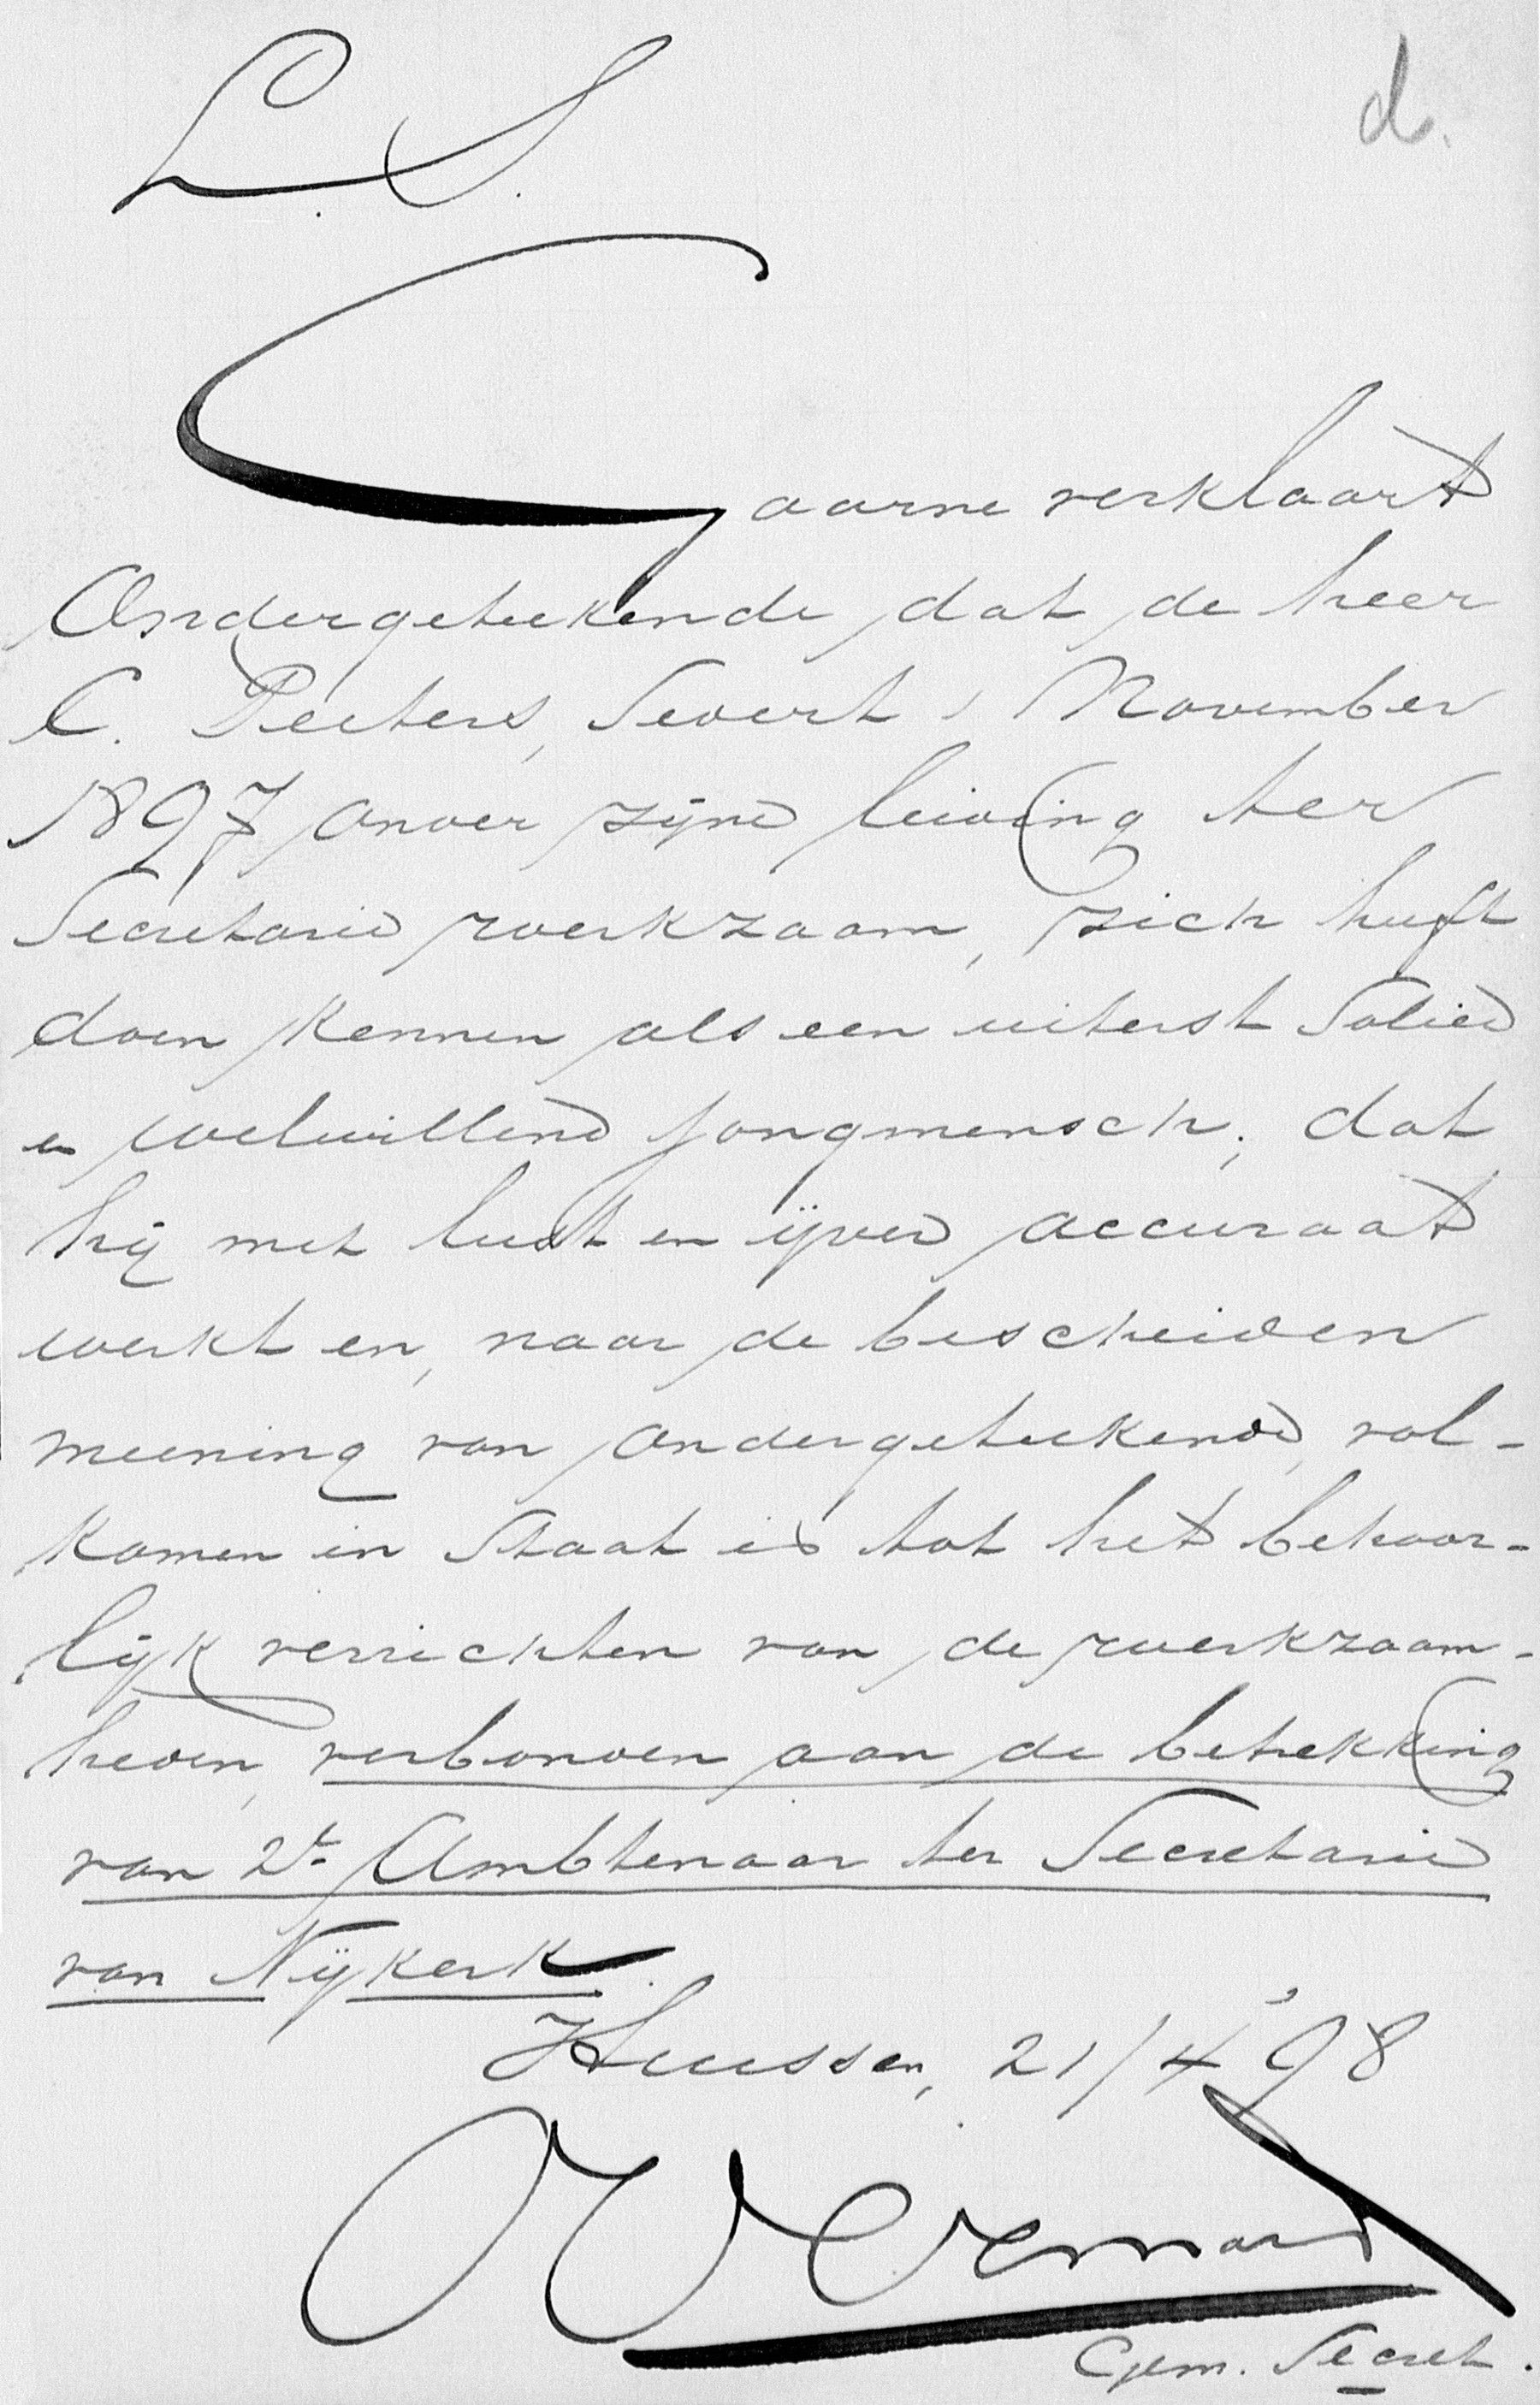 d.
L. S.
Gaarne verklaart
Ondergeteekende dat de heer
C. Peeters, sedert 1 November
1897 onder zijne leiding ter
Secretarie werkzaam, zich heeft
doen kennen als een uiterst solied
en welwillend jongmensch; dat
hij met lust en ijver accuraat
werkt en, naar de bescheiden
meening van ondergeteekende, vol-
komen in staat is tot het behoor-
lijk verrichten van de werkzaam-
heden, verbonden aan de betrekking
van 2e Ambtenaar ter Secretarie
van Nijkerk.
Huissen, 21/4 '98
Gem. Secret.